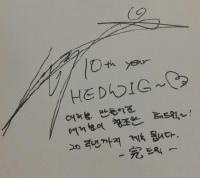 10th year
HEDWIG~♡
여러분 만들어준
여러분이 창조한 헤드윅~!
20주년까지 계속 됩니다.
-完드윅-